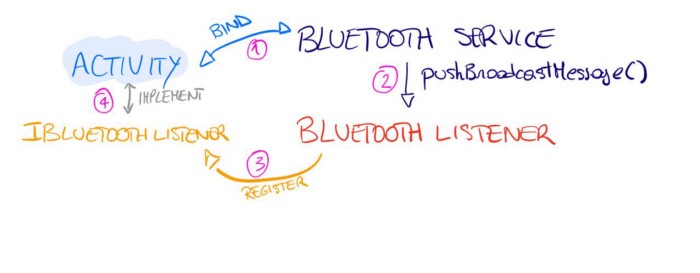 BIND
1
BLUETOOTH SERVICE
ACTIVITY
2 pushBroadcastMessage()
4 IMPLEMENT
IBLUETOOTH LISTENER
BLUETOOTH LISTENER
3
REGISTER